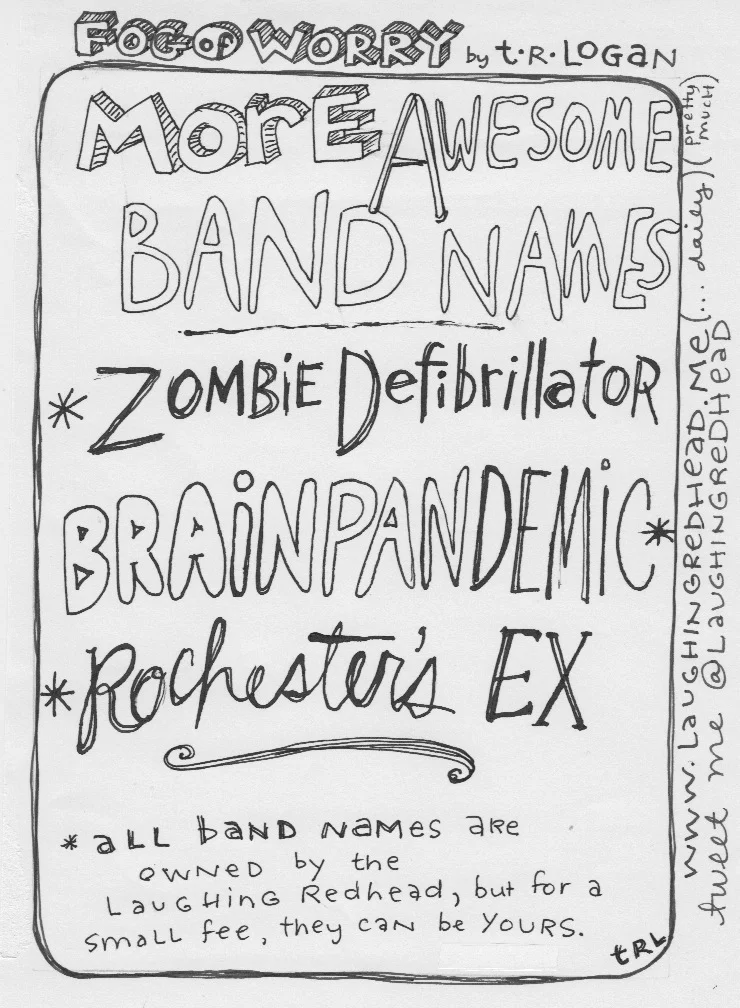 FOG of WORRY by t.R. LOGAN
MORE AWESOME
BAND NAMES
* ZOMBiE DefibrillatoR
BRAiNPANDEMiC *
* Rochester's EX
* aLL baND NaMes aRe
OWNED by the
LauGHinG Redhead, but for a
smaLL fee, they caN be YOURS.
tRL
www.LauGHINGReDHeaD.Me (... daily) (pretty much)
tweet me @LauGHiNGReDHeaD